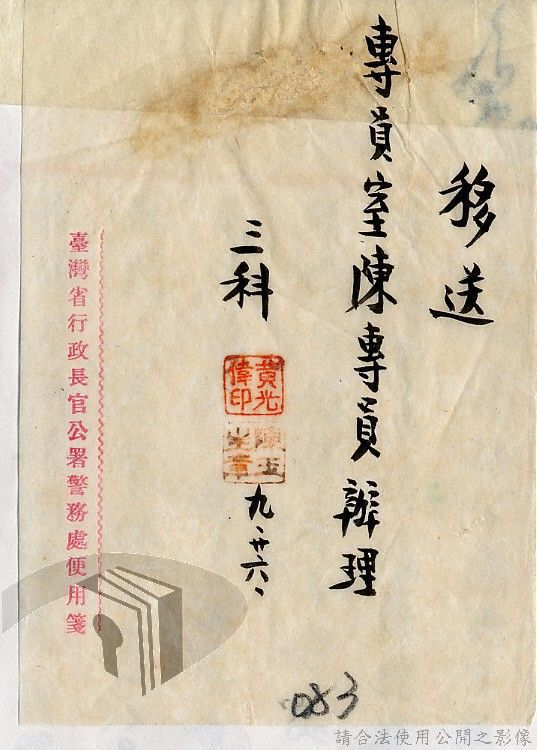 移送
專員室陳專員辦理
三科
黄光
偉印
九、廿六、
臺灣省行政長官公署警務處便用箋
083
請合法使用公開之影像